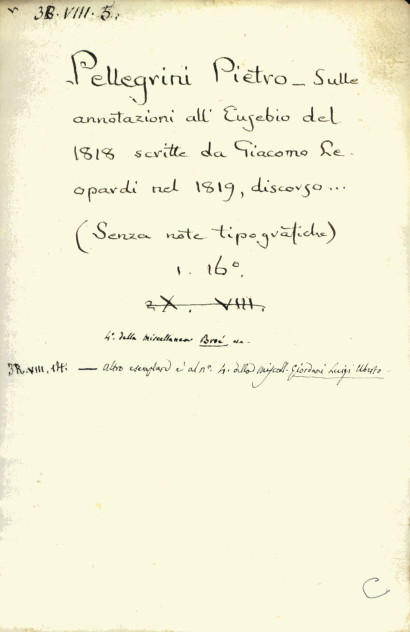 3R. VIII. 5.
Pellegrini Pietro – Sulle
annotazioni all' Eusebio del
1818 scritte da Giacomo Le-
opardi nel 1819, discorso...
(Senza note tipografiche)
1. 16°.
2X. VIII.
4°. della miscellanea
3R. VIII. 14. — Altro esemplare è al n°. 4. della miscell. Giordani Luigi Uberto
C